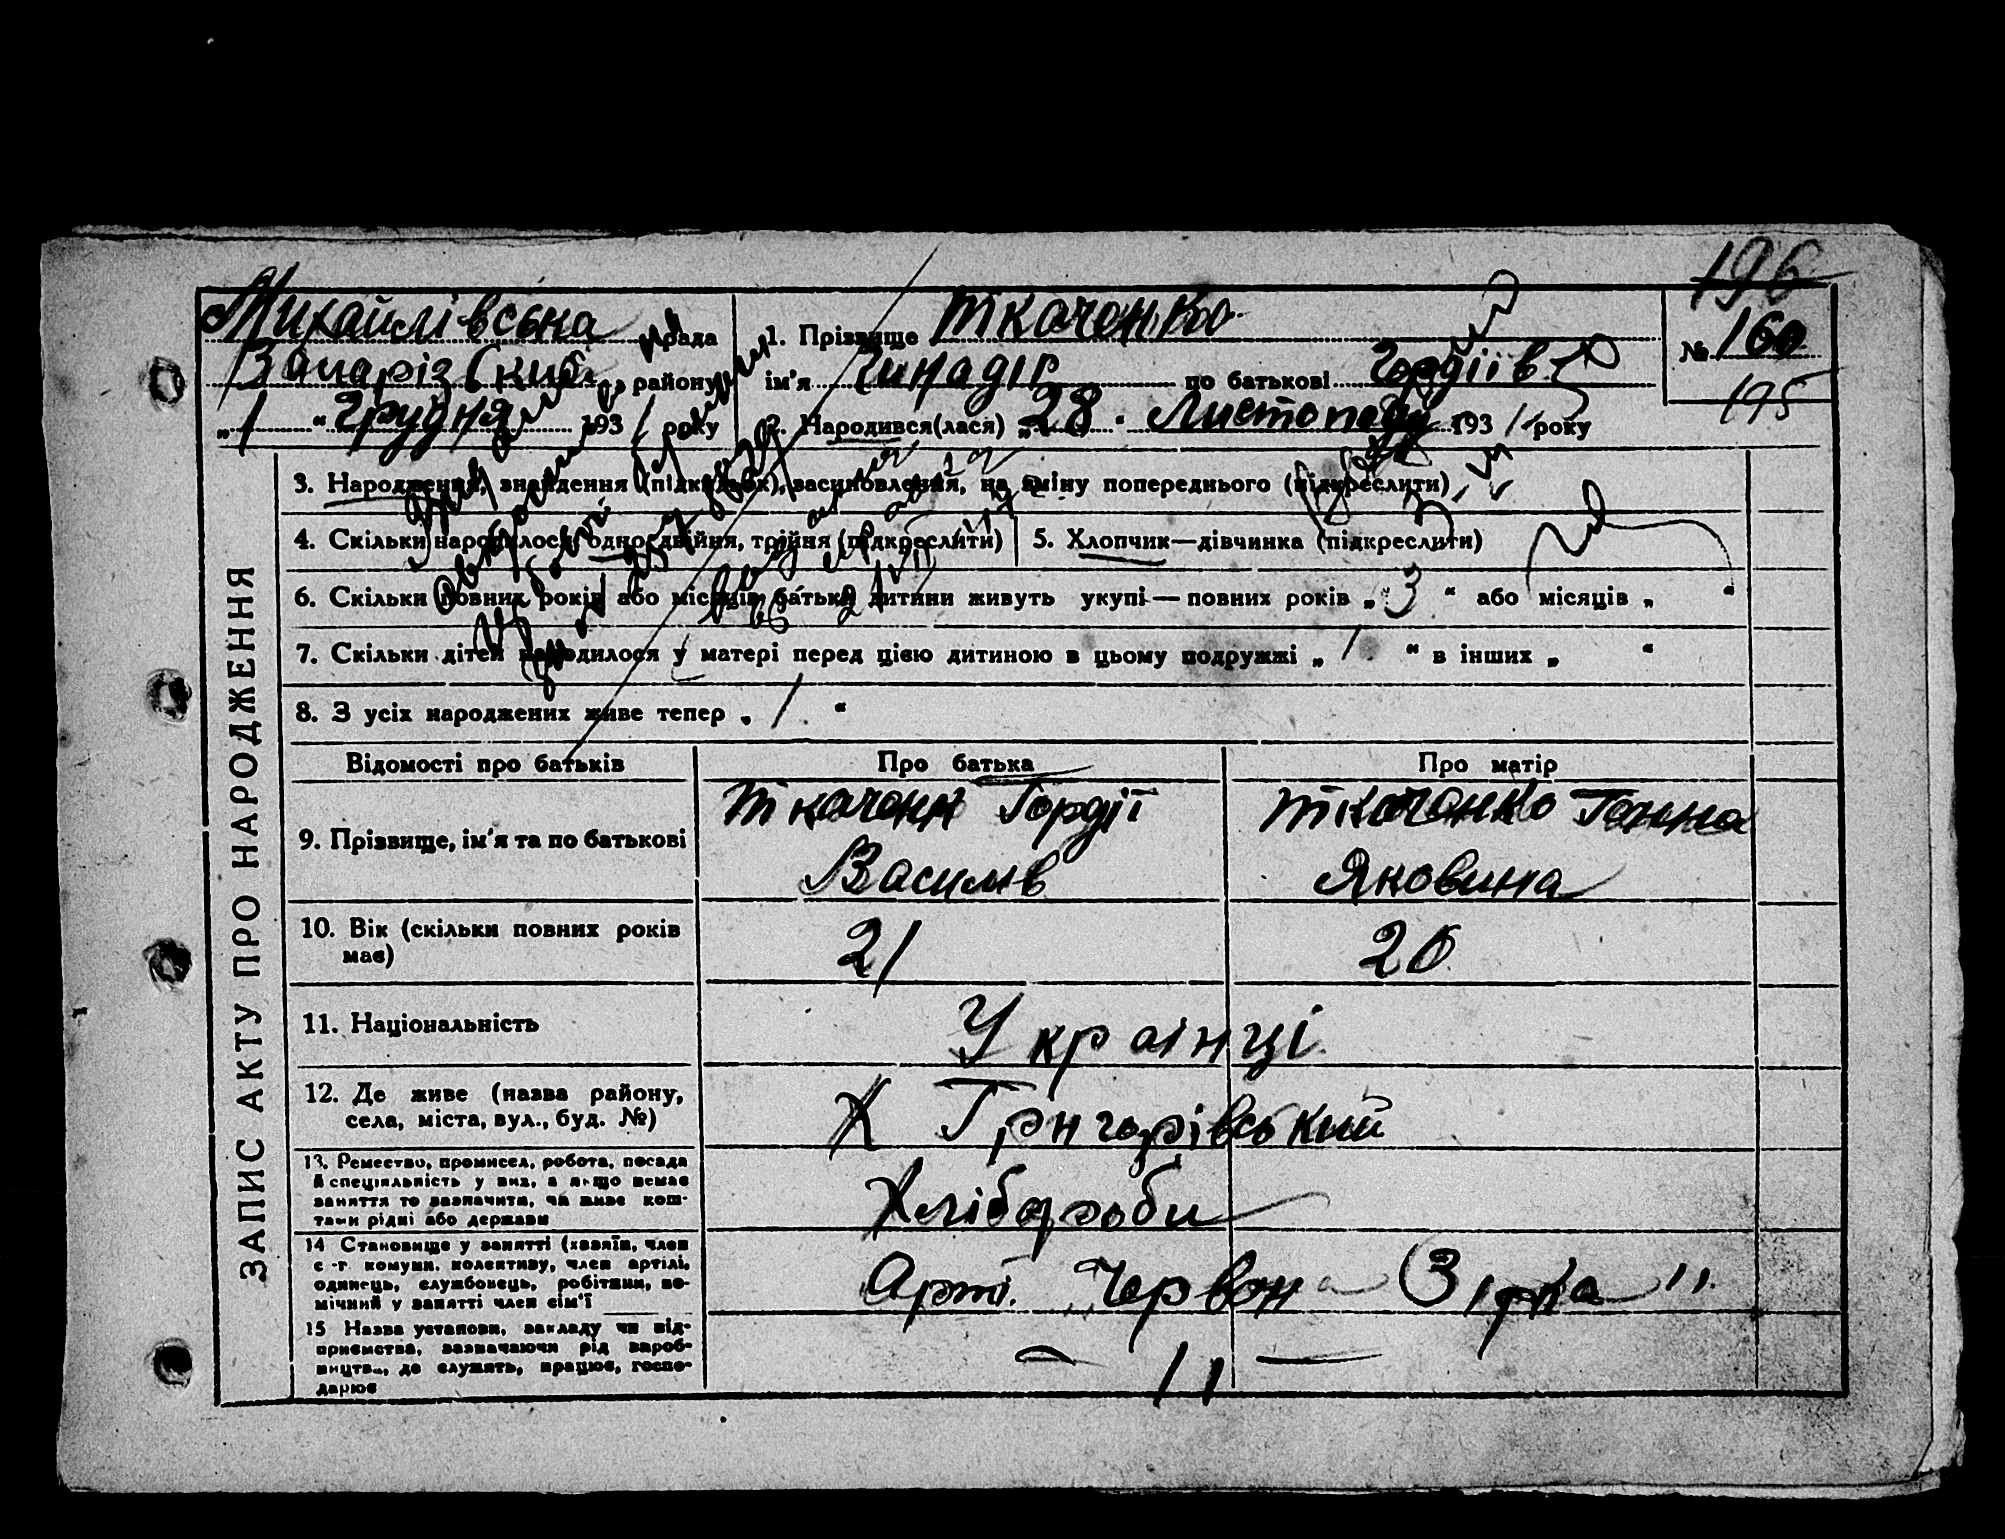 196
Михайлівська рада
1. Прізвище Ткаченко
№ 160
Запаріз(кий району
ім'я Гинадіг по батькові Гордіїв
195
„1“ Грудня 1931 року
2. Народився(лася) „28“ Листопаду 1931 року
ЗАПИС АКТУ ПРО НАРОДЖЕННЯ
3. Народження, знайдення (підкидьок), засиновлення, на зміну попереднього (підкреслити)
4. Скільки народилося одно, двійня, трійня (підкреслити)
5. Хлопчик—дівчинка (підкреслити)
6. Скільки повних років або місяців батьки дитини живуть укупі—повних років „3“ або місяців „ “
7. Скільки дітей народилося у матері перед цією дитиною в цьому подружжі „1“ в інших „ “
8. З усіх народжених живе тепер „1“
Відомості про батьків
Про батька
Про матір
9. Прізвище, ім'я та по батькові
Ткаченк Гордії
Ткаченко Ганна
Василів
Яковина
10. Вік (скільки повних років
має)
21
20
11. Національність
Українці
12. Де живе (назва району,
села, міста, вул., буд. №)
Х Григорівський
13. Ремество, промисел, робота, посада
й спеціяльність у них, а якщо немає
заняття то зазначити, чи живе кош-
тами рідні або держави
Хлібороби
14 Становище у занятті (хазяїн, член
с.-г комуни, колективу, член артілі,
одинець, службовець, робітник, по-
мічний у занятті член сім'ї
Арті. „Червона Зірка"
15 Назва установи, закладу чи під-
приємства, зазначаючи рід вироб-
ництва, де служить, працює, госпо-
дарює
— 11 —